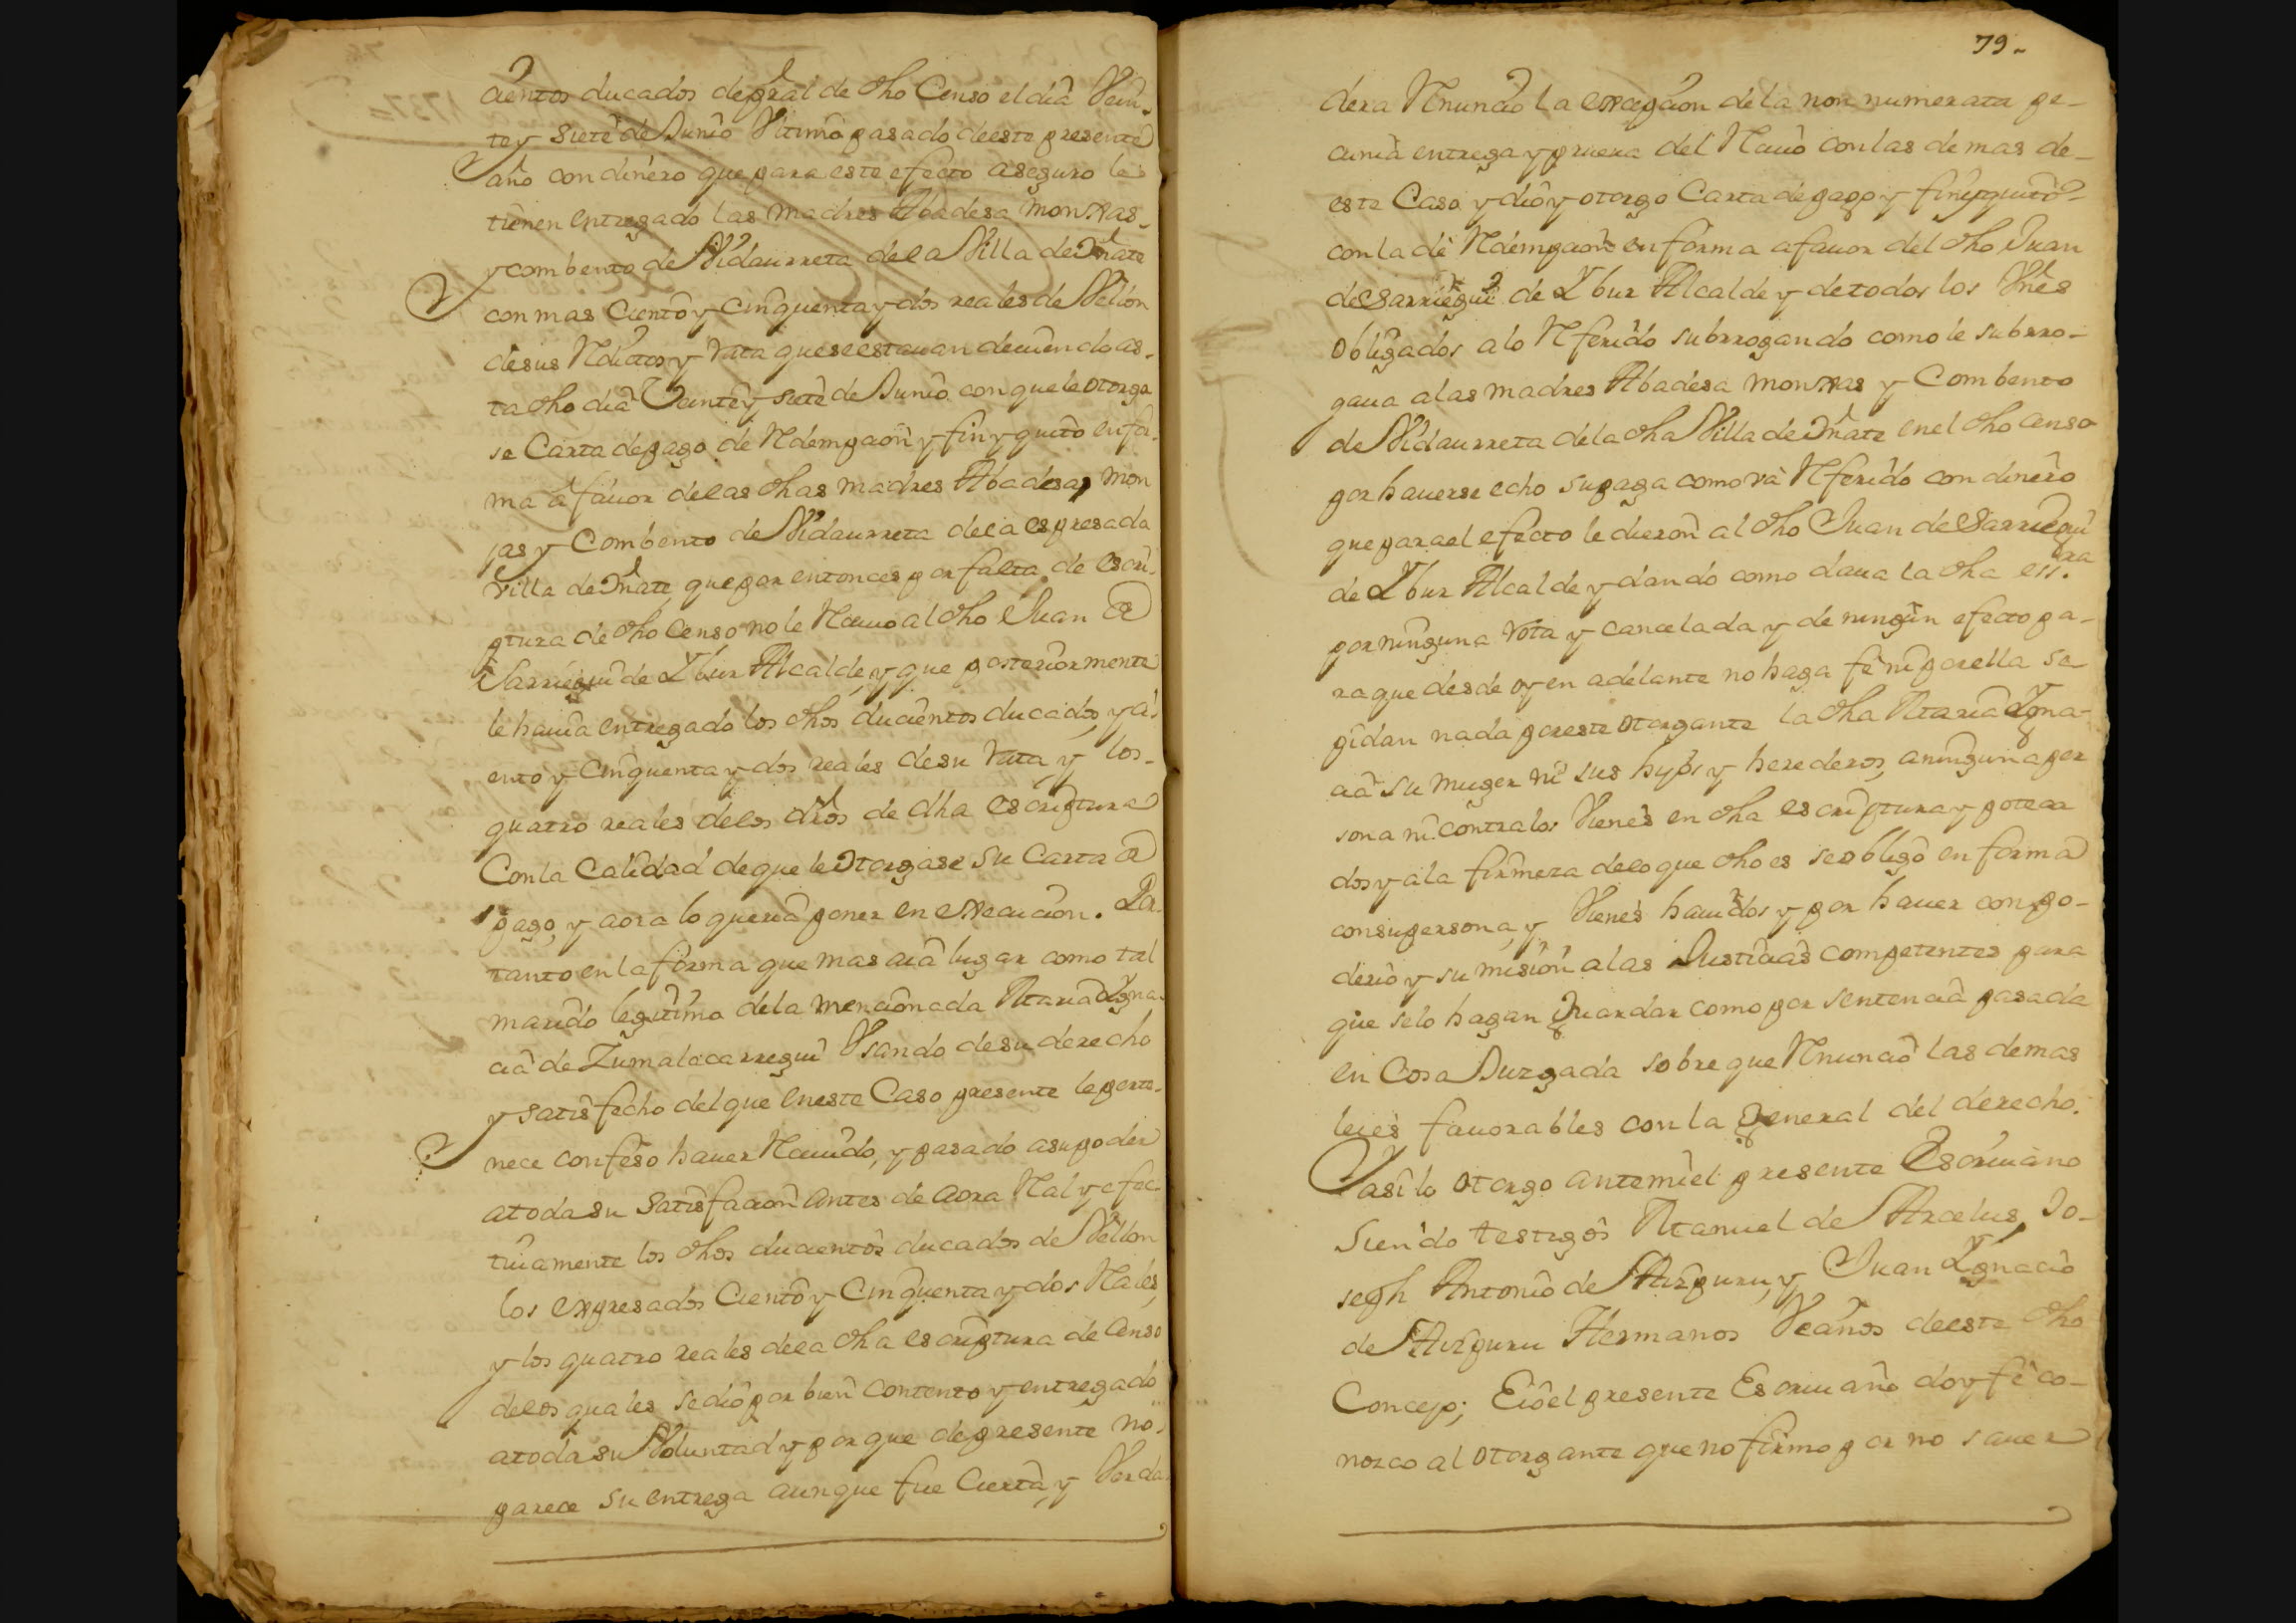 cientos ducados de pral de dho Censo el dia Vein-
te y siete de Junio Vltimo pasado de este presente
año con dinero que para este efecto aseguro les
tienen entregado las madres Abadesa monxas
y combento de Vidaurreta de la Villa de Oñate
con mas Ciento y Cinquenta y dos reales de Vellon
de sus Reditos y rata que se estauan deuiendo as-
ta dho dia Veinte y siete de Junio con que le otorga
se Carta de pago de Redempcion y fin y quito en for-
ma a fauor de las dhas madres Abadesa, mon
jas y Combento de Vidaurreta de la espresada
villa de Oñate, que por entonces por falta de escri-
ptura de dho Censo no le Reciuio al dho Juan de
Sarriegui de Ybur Alcalde, y que posteriormente
le hauia entregado los dhos ducientos ducados, y ci-
ento y Cinquenta y dos reales de su rata, y los
quatro reales de los dros de dha escriptura
Con la Calidad de que le Otorgase su Carta de
pago, y aora lo queria poner en execucion. Por
tanto en la forma que mas aia lugar como tal
marido legitimo de la mencionada Maria Ygna-
cia de Zumalacarregui Vsando de su derecho
y satisfecho del que en este Caso presente le perte-
nece confeso hauer Reciuido, y pasado a su poder
a toda su satisfacion antes de aora Real y efec-
tiuamente los dhos ducientos ducados de Vellon
los expresados Ciento y Cinquenta y dos Reales,
y los quatro reales de la dha escriptura de Censo
de los quales se dio por bien contento y entregado
a toda su Voluntad y por que de presente no
parece su entrega aunque fue Cierta, y Verda
79.
dera Renuncio la excepcion de la non numerata pe-
cunia entrega y prueua del Reciuo con las demas de
este Caso y dio y otorgo Carta de pago y fin y quito
con la de Redempcion en forma a fauor del dho Juan
de Sarriegui de Ybur Alcalde y de todos los Vnes
obligados a lo Referido subrrogando como le subrro-
gaua a las madres Abadesa monxas y Combento
de Vidaurreta de la dha Villa de Oñate en el dho censo
por hauerse echo su paga como va Referido con dinero
que para el efecto le dieron al dho Juan de Sarriegui
de Ybur Alcalde y dando como daua la dha essra
por ninguna rota y cancelada y de ningun efecto pa-
ra que desde oy en adelante no haga fe ni por ella se
pidan nada por este otorgante la dha Maria Ygna-
cia su muger ni sus hijos y herederos, a ninguna per
sona ni contra los Vienes en dha escriptura ypoteca
dos y a la firmeza de lo que dho es se obligo en forma
con su persona, y Vienes hauidos y por hauer con po-
derio y sumision a las Justicias competentes para
que se lo hagan Guardar como por sentencia pasada
en Cosa Juzgada sobre que Renuncio las demas
leies fauorables con la General del derecho.
Y asi lo otorgo ante mi el presente Escriuano
siendo testigos Manuel de Arcelus, Jo-
seph Antonio de Aizpuru, y Juan Ygnacio
de Aizpuru Hermanos Vecinos de este dho
Concejo; E io el presente Escriuano doy fe co-
nozco al otorgante que no firmo por no sauer